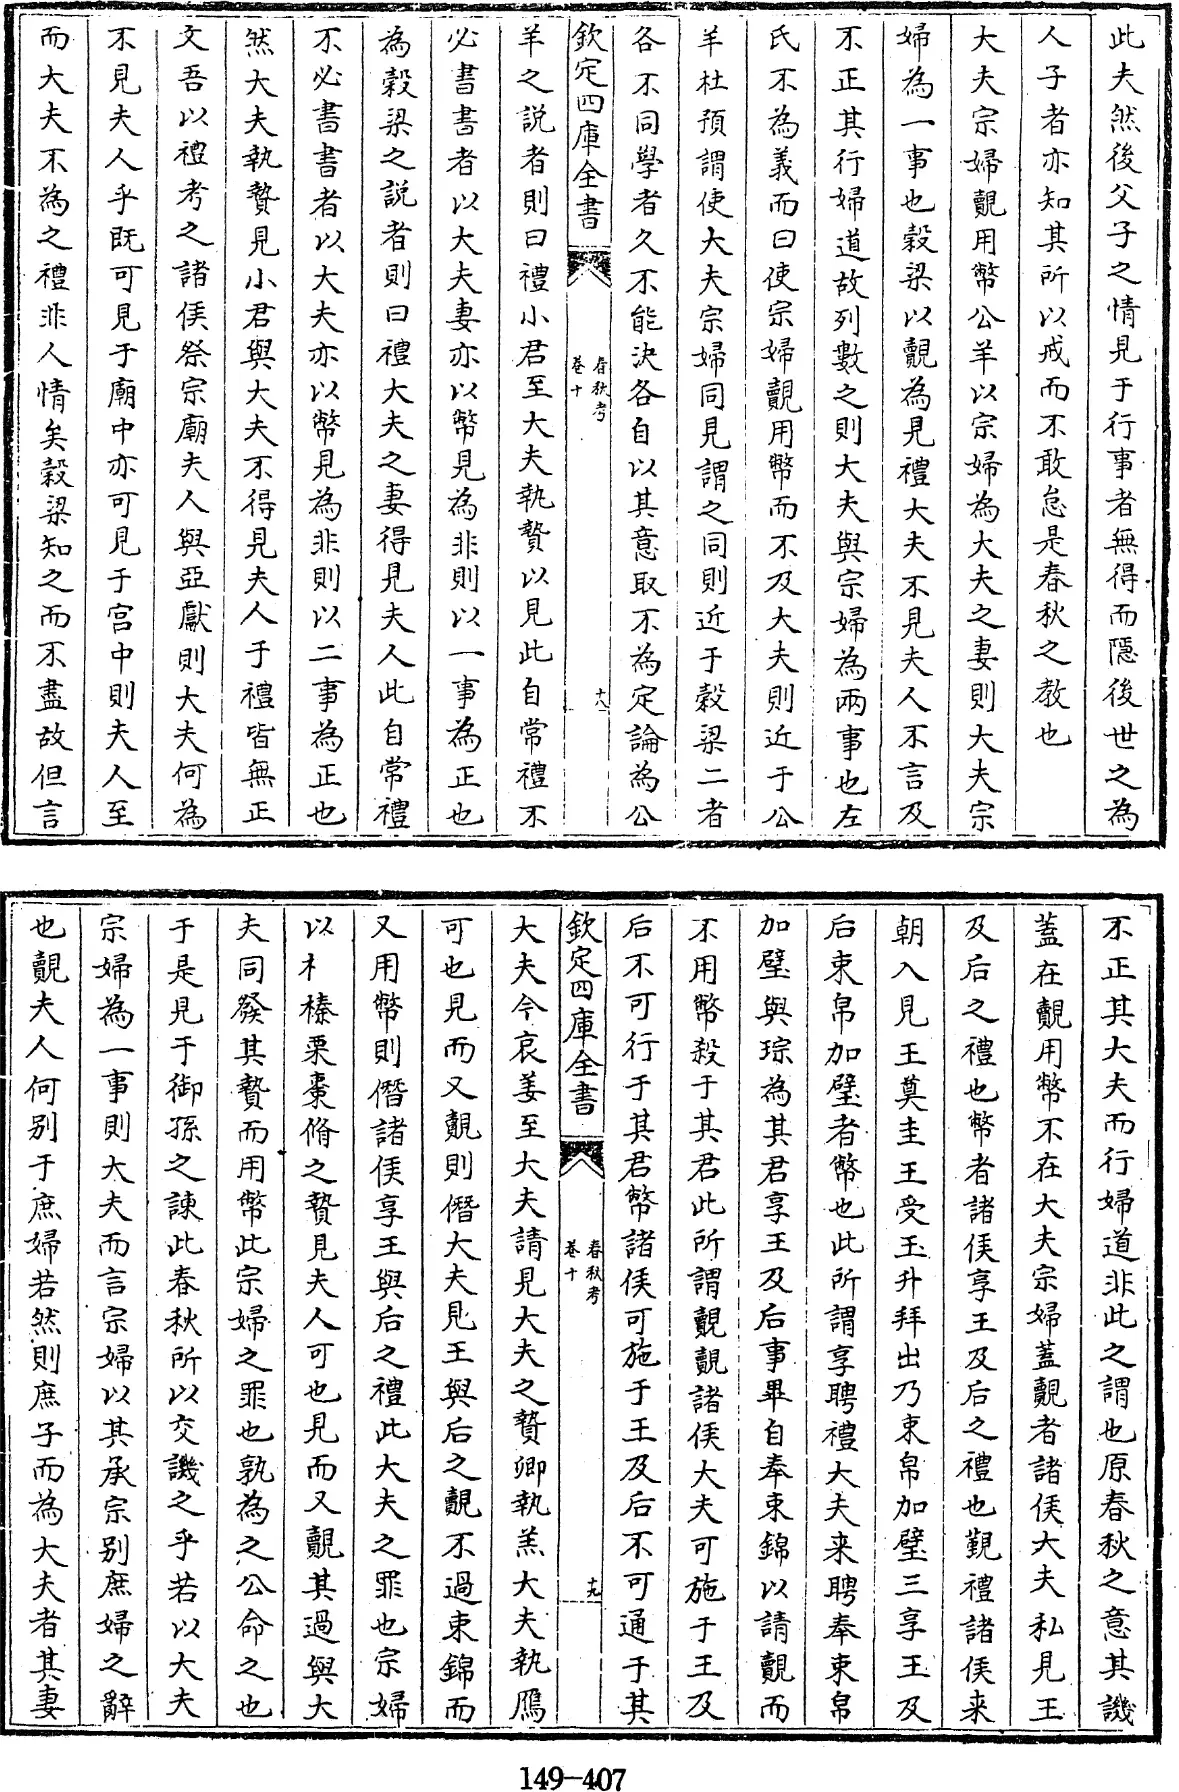 此夫然後父子之情見于行事者無得而隱後世之為
人子者亦知其所以戒而不敢怠是春秋之教也
大夫宗婦覿用幣公羊以宗婦為大夫之妻則大夫宗
婦為一事也穀梁以覿為見禮大夫不見夫人不言及
不正其行婦道故列數之則大夫與宗婦為兩事也左
氏不為義而曰使宗婦覿用幣而不及大夫則近于公
羊杜預謂使大夫宗婦同見謂之同則近于穀梁二者
各不同學者久不能決各自以其意取不為定論為公
欽定四庫全書
春秋考
卷十
十八
羊之説者則曰禮小君至大夫執贄以見此自常禮不
必書書者以大夫妻亦以幣見為非則以一事為正也
為穀梁之説者則曰禮大夫之妻得見夫人此自常禮
不必書書者以大夫亦以幣見為非則以二事為正也
然大夫執贄見小君與大夫不得見夫人于禮皆無正
文吾以禮考之諸侯祭宗廟夫人與亞獻則大夫何為
不見夫人乎既可見于廟中亦可見于宫中則夫人至
而大夫不為之禮非人情矣穀梁知之而不盡故但言
不正其大夫而行婦道非此之謂也原春秋之意其譏
蓋在覿用幣不在大夫宗婦蓋覿者諸侯大夫私見王
及后之禮也幣者諸侯享王及后之禮也覲禮諸侯來
朝入見王奠圭王受玉升拜出乃束帛加璧三享王及
后束帛加璧者幣也此所謂享聘禮大夫来聘奉束帛
加璧與琮為其君享王及后事畢自奉束錦以請覿而
不用幣殺于其君此所謂覿覿諸侯大夫可施于王及
后不可行于其君幣諸侯可施于王及后不可通于其
欽定四庫全書
春秋考
卷十
十九
大夫今哀姜至大夫請見大夫之贄卿執羔大夫執鴈
可也見而又覿則僭大夫見王與后之覿不過束錦而
又用幣則僭諸侯享王與后之禮此大夫之罪也宗婦
以木榛栗棗脩之贄見夫人可也見而又覿其過與大
夫同發其贄而用幣此宗婦之罪也孰為之公命之也
于是見于御孫之諫此春秋所以交譏之乎若以大夫
宗婦為一事則大夫而言宗婦以其承宗别庶婦之辭
也覿夫人何别于庶婦若然則庶子而為大夫者其妻
149-407